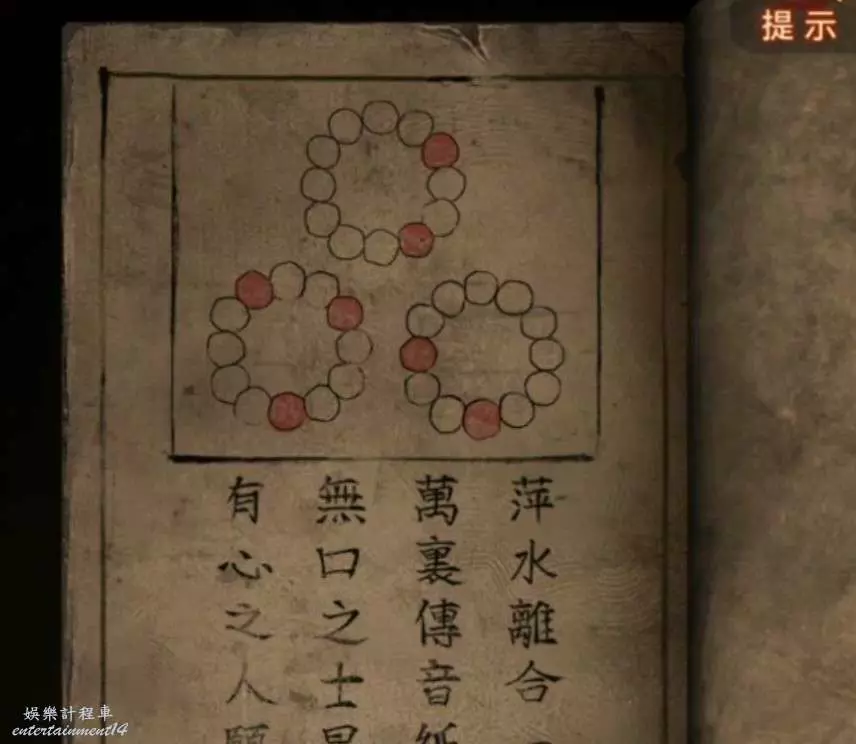 提示
萍水離合
萬裏傳音
無口之士
有心之人
娛樂計程車
entertainment14